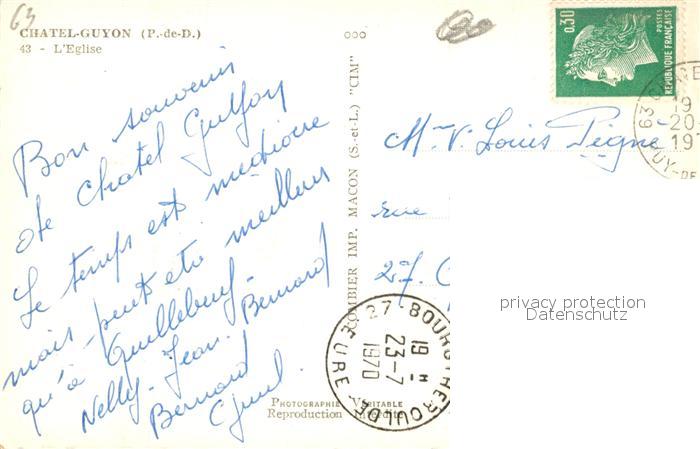 63
CHATEL-GUYON (P.-de-D.)
43 - L'Eglise
Bon souvenir
de Chatel Guyon
Le temps est médiocre
mais peut etre meilleur
qu'à Quillebeuf-
Nelly - Jean Bernard
Bernard
COMBIER IMP. MACON (S.-et-L.) "CIM"
PHOTOGRAPHIE VÉRITABLE
Reproduction Interdite
0,30
POSTES
REPUBLIQUE FRANÇAISE
63
-20-
19
PUY-DE
Mr. Louis Pigne
rue
27.
27-BOURGTHEROULDE
19 H
23-7
1970
EURE
privacy protection
Datenschutz